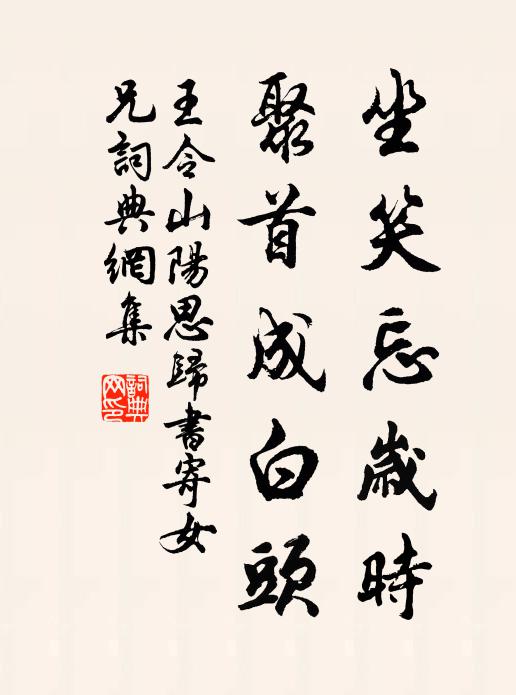 坐笑忘歲時
聚首成白頭
王令山陽思歸書寄女
兄詞典網集
詞典網印